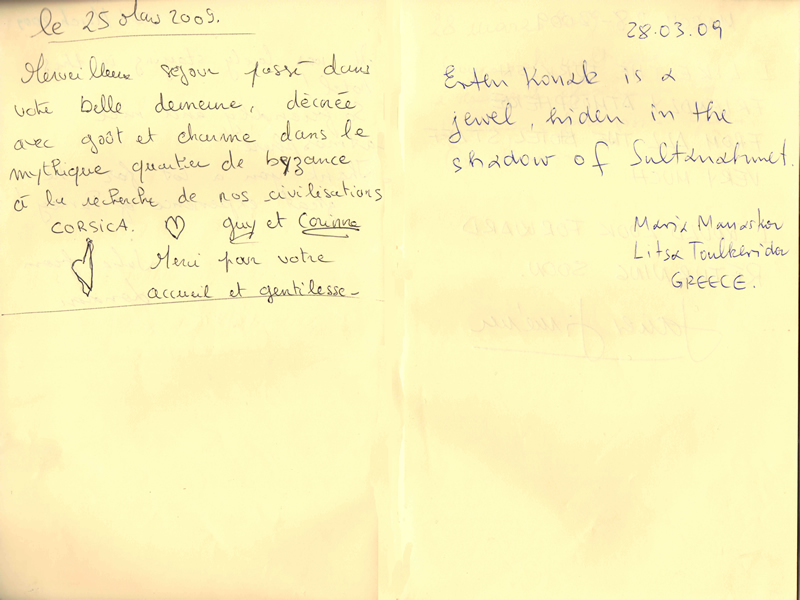 le 25 Mars 2009.
Merveilleux sejour passé dans
votre belle demeure, décorée
avec goût et charme dans le
mythique quartier de byzance
à la recherche de nos civilisations
CORSICA. guy et Corinne
Merci pour votre
accueil et gentillesse-
28.03.09
Erten Konak is a
jewel, hiden in the
shadow of Sultanahmet.
Maria
Litsa
GREECE.